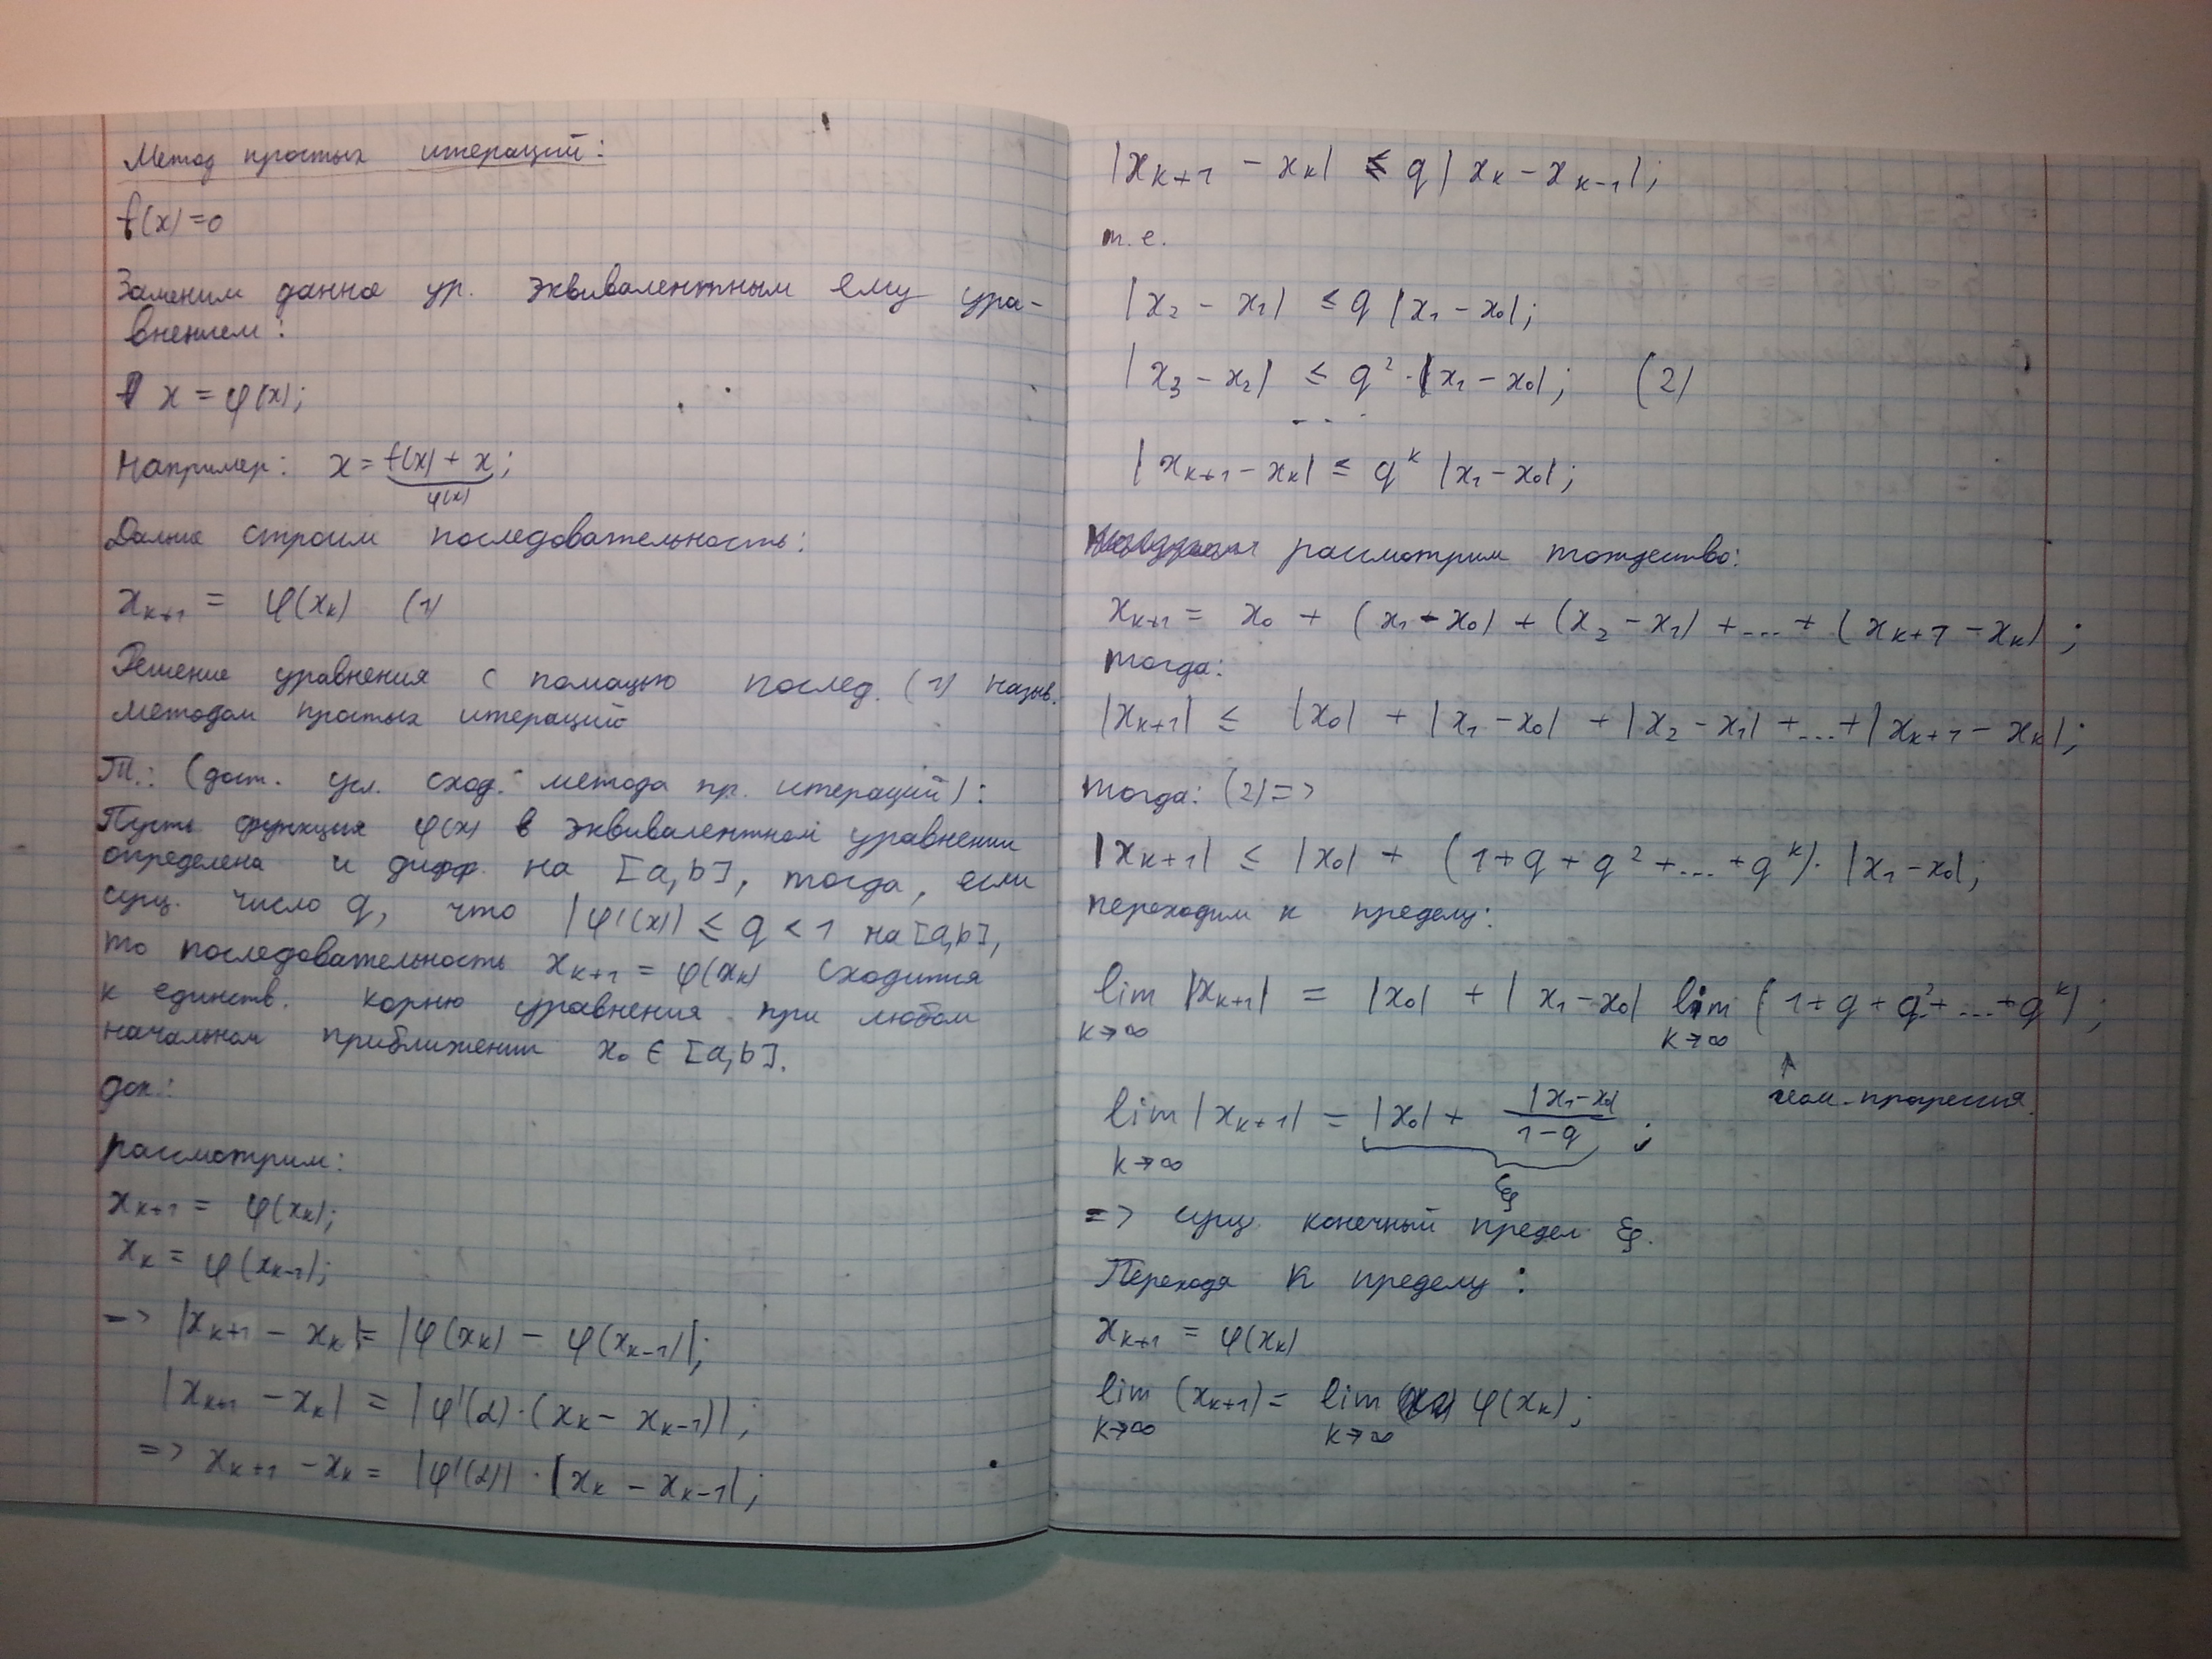 Метод простых итераций:
f(x)=0
Заменим данное ур. эквивалентным ему ура-
внением:
x = φ(x);
Например: x = f(x) + x;
φ(x)
Дальше строим последовательность:
x_{k+1} = φ(x_k) (1)
Решение уравнения с помощью послед. (1) назыв.
методом простых итераций
Т.: (дост. усл. сход. метода пр. итераций):
Пусть функция φ(x) в эквивалентном уравнении
определена и дифф. на [a,b], тогда, если
сущ. число q, что |φ'(x)| ≤ q < 1 на [a,b],
то последовательность x_{k+1} = φ(x_k) сходится
к единств. корню уравнения при любом
начальном приближении x₀ ∈ [a,b].
док.:
рассмотрим:
x_{k+1} = φ(x_k);
x_k = φ(x_{k-1});
=> |x_{k+1} - x_k| = |φ(x_k) - φ(x_{k-1})|;
|x_{k+1} - x_k| = |φ'(α)·(x_k - x_{k-1})|;
=> x_{k+1} - x_k = |φ'(α)| · |x_k - x_{k-1}|;
|x_{k+1} - x_k| ≤ q |x_k - x_{k-1}|;
т.е.
|x₂ - x₁| ≤ q |x₁ - x₀|;
|x₃ - x₂| ≤ q² · |x₁ - x₀|; (2)
...
|x_{k+1} - x_k| ≤ q^k |x₁ - x₀|;
рассмотрим тождество:
x_{k+1} = x₀ + (x₁ - x₀) + (x₂ - x₁) + ... + (x_{k+1} - x_k);
тогда:
|x_{k+1}| ≤ |x₀| + |x₁ - x₀| + |x₂ - x₁| + ... + |x_{k+1} - x_k|;
тогда: (2) =>
|x_{k+1}| ≤ |x₀| + (1 + q + q² + ... + q^k) · |x₁ - x₀|;
переходим к пределу:
lim_{k→∞} |x_{k+1}| = |x₀| + |x₁ - x₀| lim_{k→∞} (1 + q + q² + ... + q^k);
геом. прогрессия.
lim_{k→∞} |x_{k+1}| = |x₀| + |x₁ - x₀| / (1 - q);
ξ
=> сущ. конечный предел ξ.
Переходя к пределу:
x_{k+1} = φ(x_k)
lim_{k→∞} (x_{k+1}) = lim_{k→∞} φ(x_k);